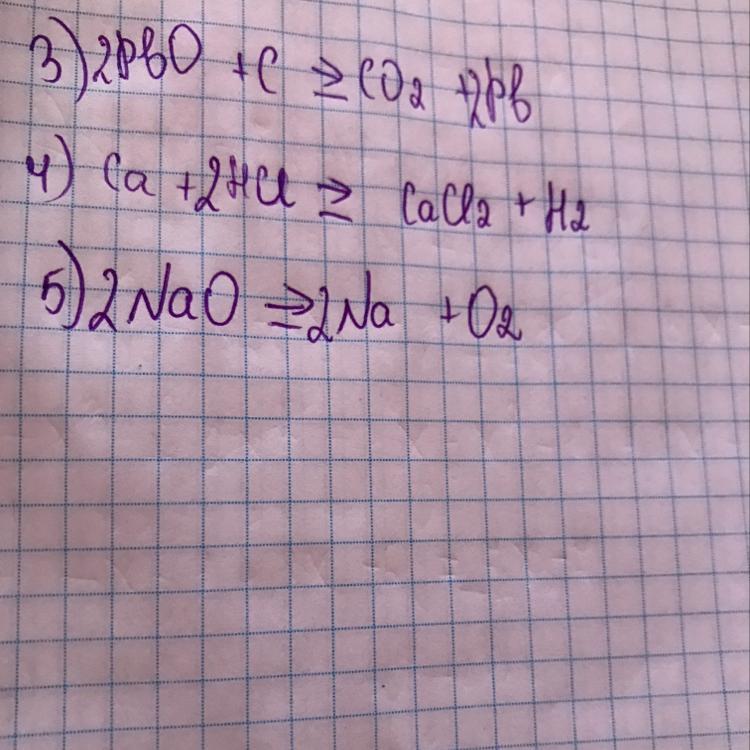 3) 2PbO + C ⇒ CO2 + 2Pb
4) Ca + 2HCl ⇒ CaCl2 + H2
5) 2NaO ⇒ 2Na + O2